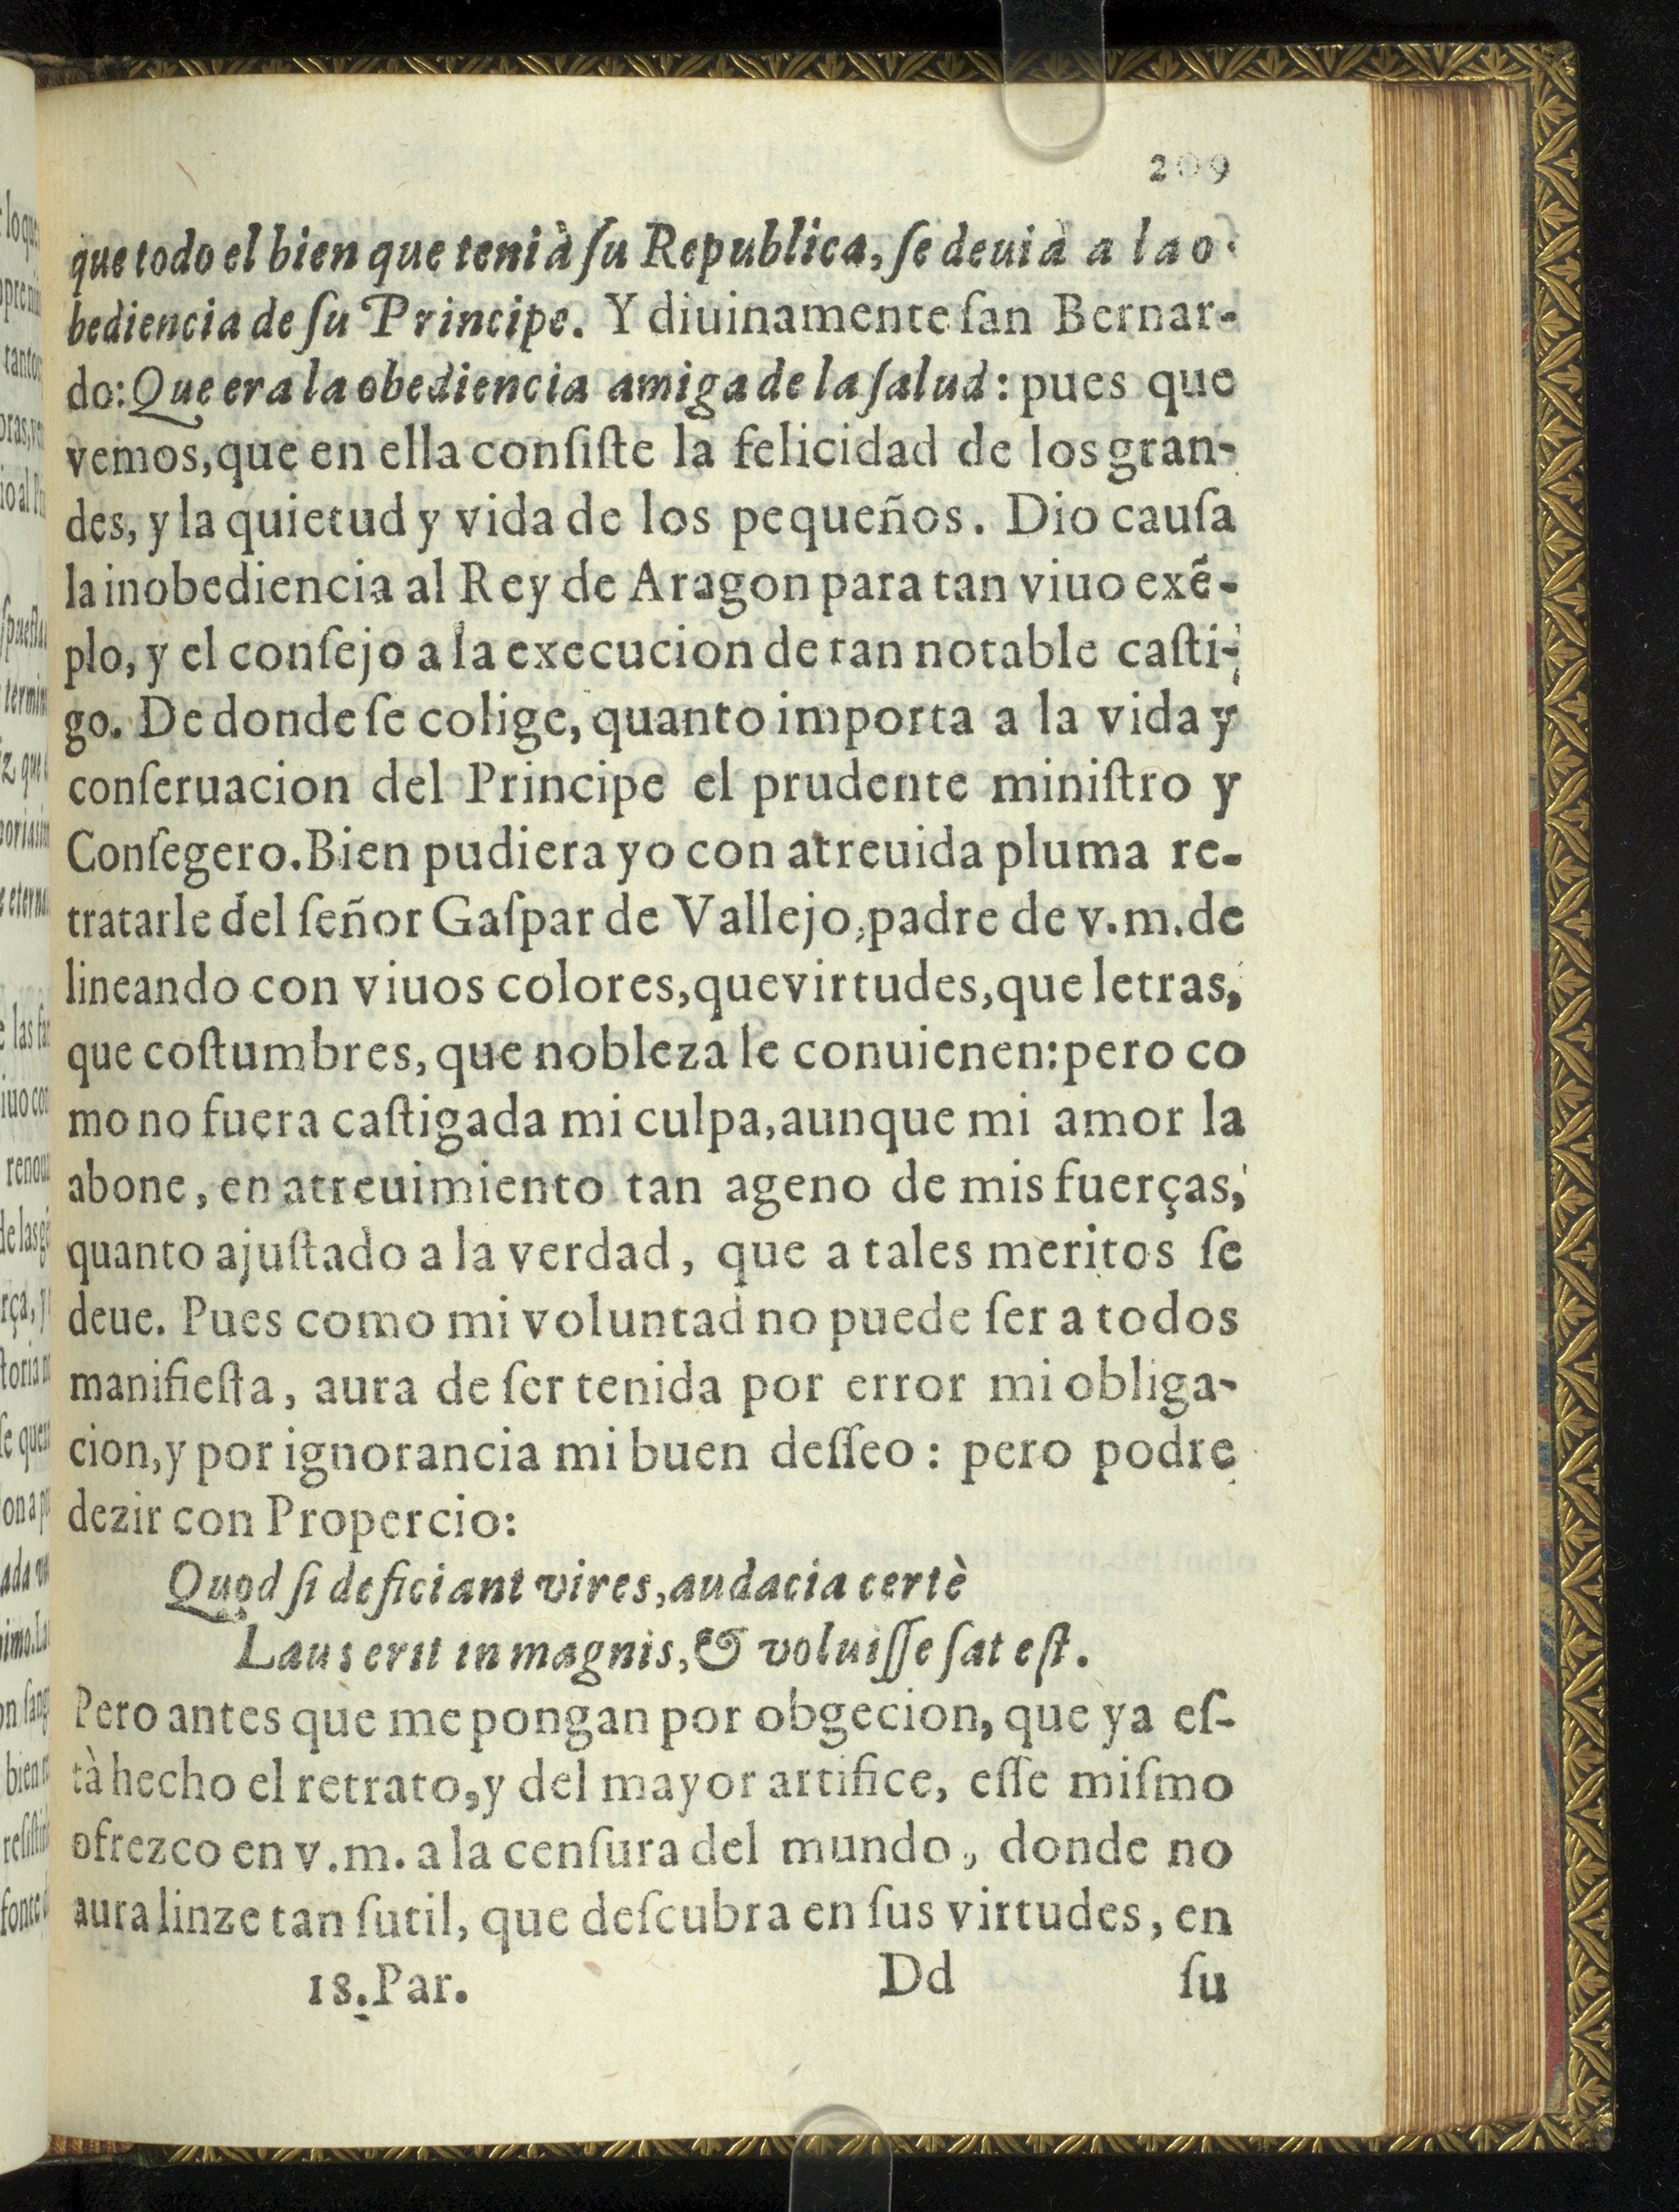 209
que todo el bien que tenià ſu Republica, ſe deuià a la o-
bediencia de ſu Principe. Y diuinamente ſan Bernar-
do: Que era la obediencia amiga de la ſalud: pues que
vemos, que en ella conſiſte la felicidad de los gran-
des, y la quietud y vida de los pequeños. Dio cauſa
la inobediencia al Rey de Aragon para tan viuo exẽ-
plo, y el conſejo a la execucion de tan notable caſti-
go. De donde ſe colige, quanto importa a la vida y
conſeruacion del Principe el prudente miniſtro y
Conſegero. Bien pudiera yo con atreuida pluma re-
tratarle del ſeñor Gaſpar de Vallejo, padre de v.m. de
lineando con viuos colores, que virtudes, que letras,
que coſtumbres, que nobleza le conuienen: pero co
mo no fuera caſtigada mi culpa, aunque mi amor la
abone, en atreuimiento tan ageno de mis fuerças,
quanto ajuſtado a la verdad, que a tales meritos ſe
deue. Pues como mi voluntad no puede ſer a todos
manifieſta, aura de ſer tenida por error mi obliga-
cion, y por ignorancia mi buen deſſeo: pero podre
dezir con Propercio:
Quod ſi deficiant vires, audacia certè
Laus erit in magnis, & voluiſſe ſat eſt.
Pero antes que me pongan por obgecion, que ya eſ-
tà hecho el retrato, y del mayor artifice, eſſe miſmo
ofrezco en v.m. a la cenſura del mundo, donde no
aura linze tan ſutil, que deſcubra en ſus virtudes, en
18. Par. Dd ſu